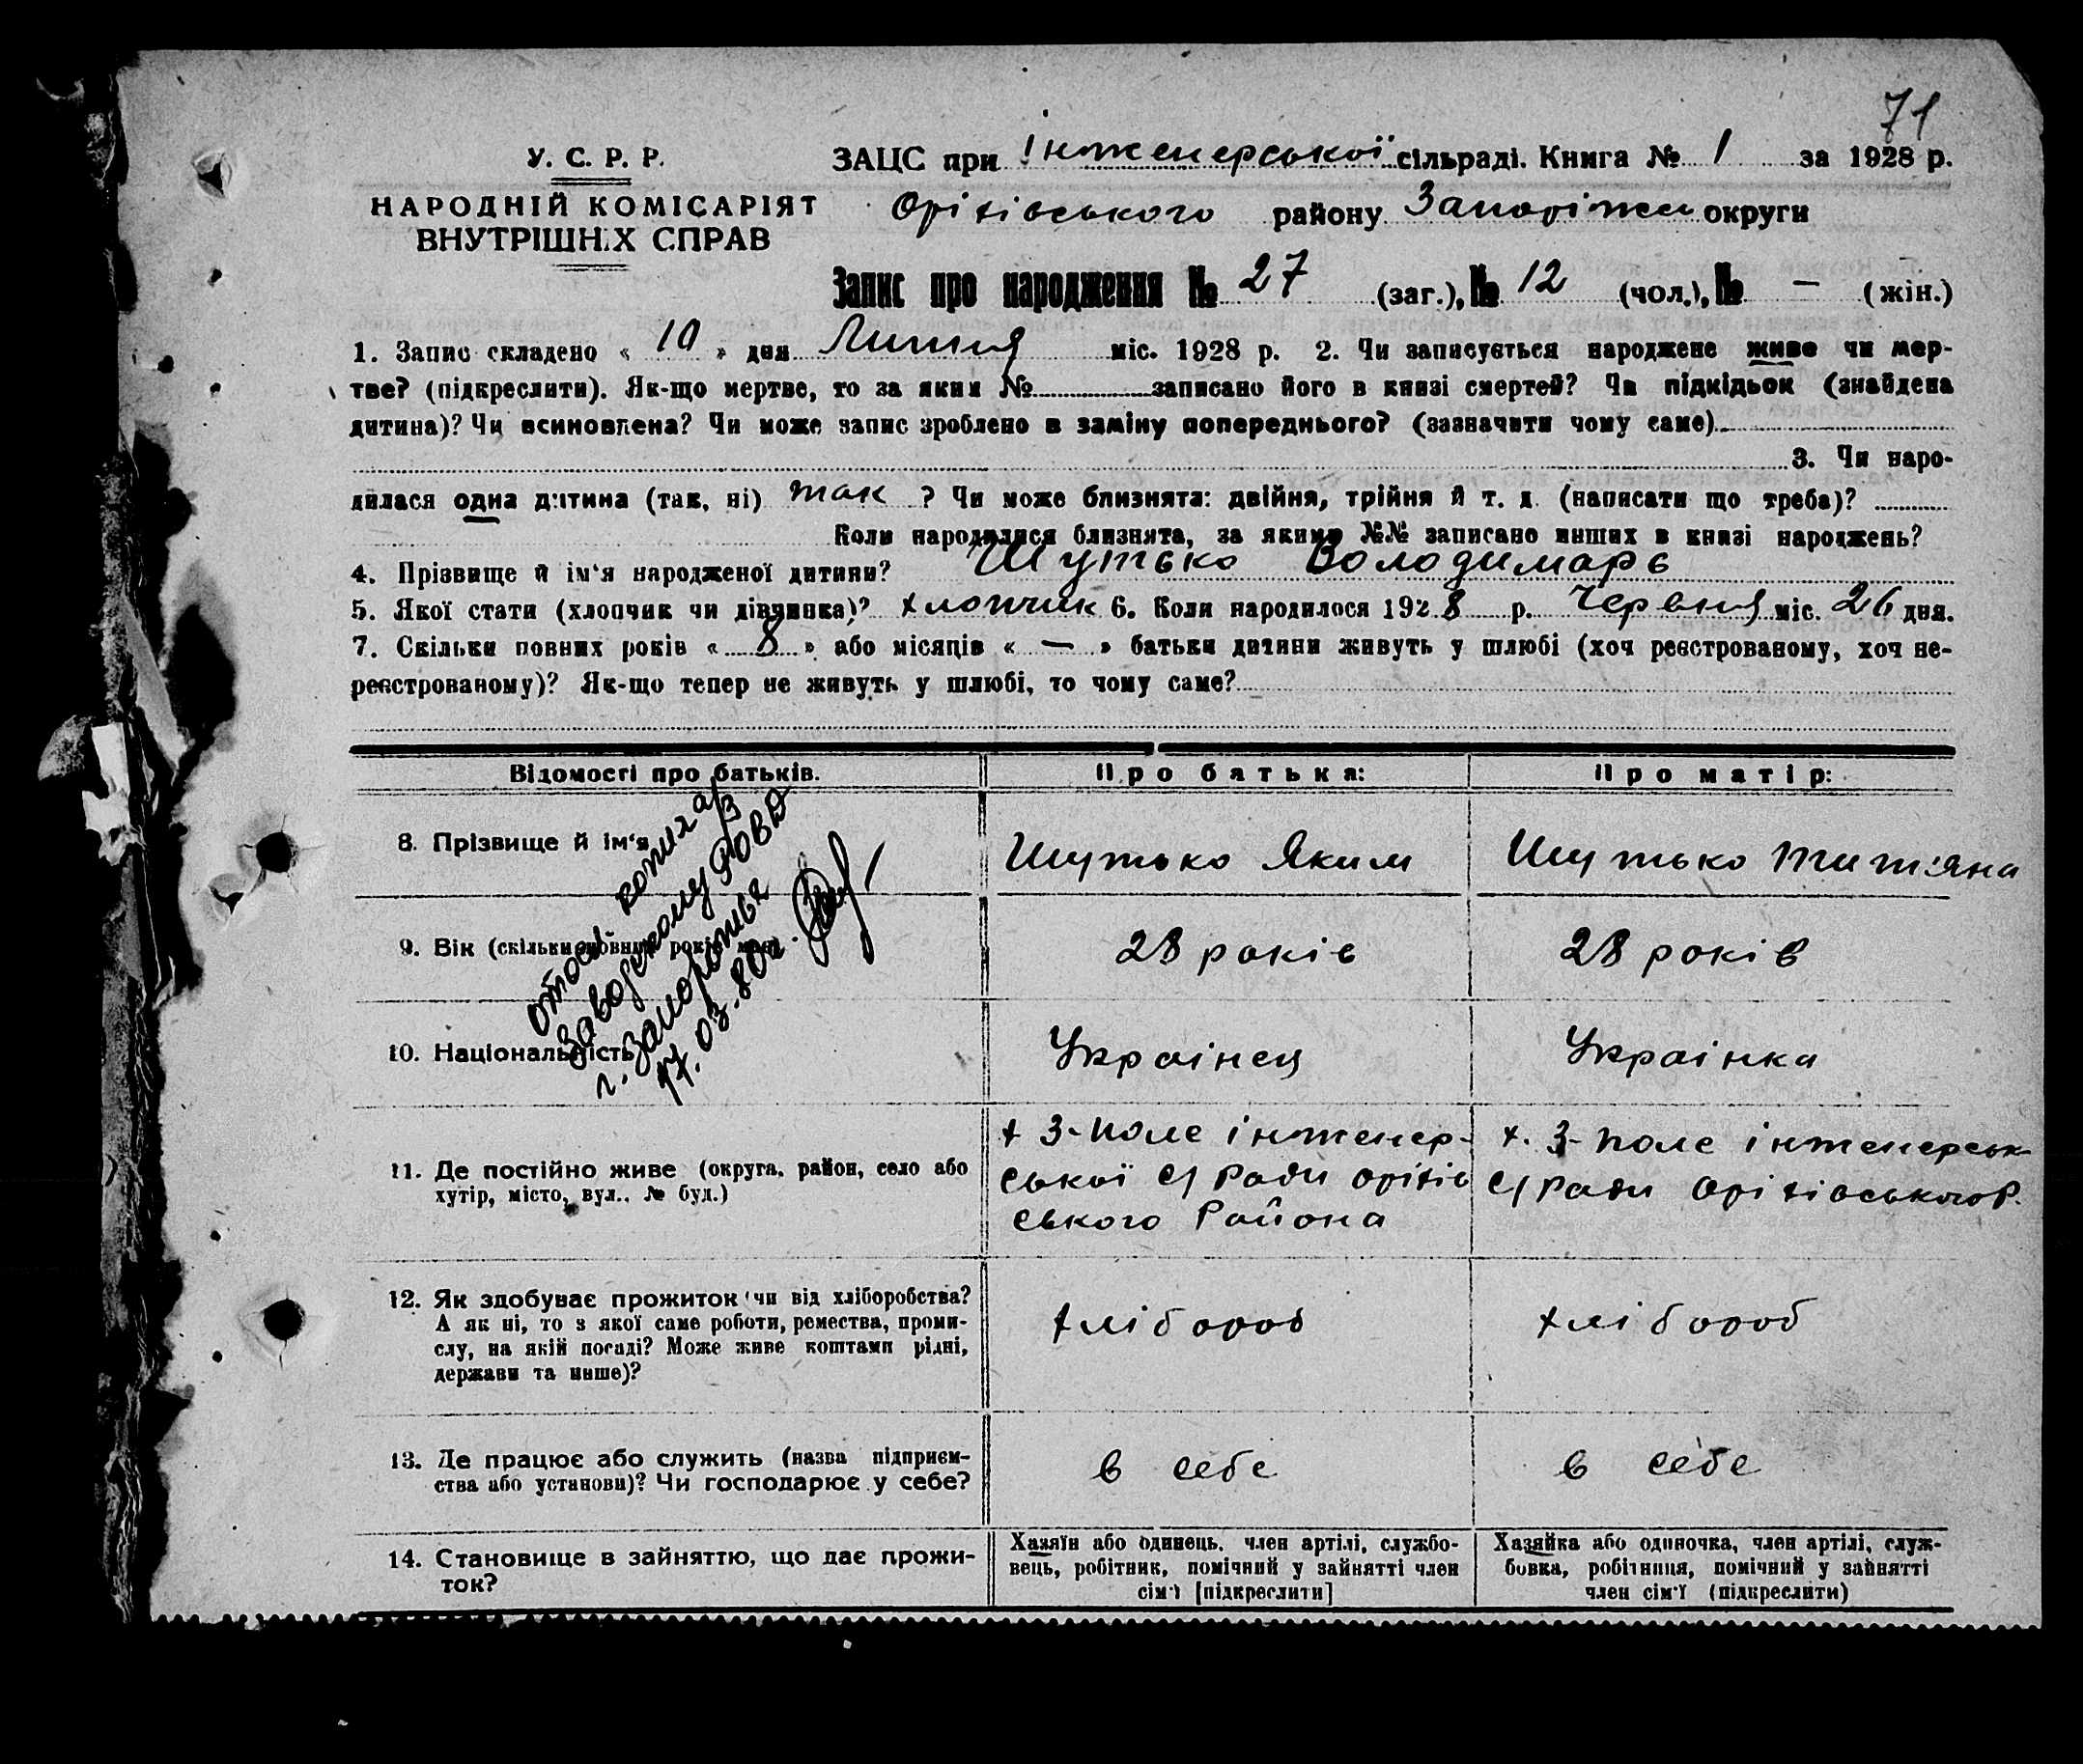 71
У. С. Р. Р.
НАРОДНІЙ КОМІСАРІЯТ
ВНУТРІШНІХ СПРАВ
ЗАЦС при Інженерської сільраді. Книга № 1 за 1928 р.
Оріхівського району Запоріжж округи
Запис про народження № 27 (заг.), № 12 (чол.), № — (жін.)
1. Запис складено « 10 » дня Липня міс. 1928 р. 2. Чи записується народжене живе чи мер-
тве? (підкреслити). Як-що мертве, то за яким № записано його в книзі смертей? Чи підкідьок (знайдена
дитина)? Чи всиновлена? Чи може запис зроблено в заміну попереднього? (зазначити чому саме)
3. Чи наро-
дилася одна дитина (так, ні) так ? Чи може близнята: двійня, трійня й т. д. (написати що треба)?
Коли народилися близнята, за якими №№ записано инших в книзі народжень?
4. Прізвище й ім'я народженої дитини? Шутько Володимарь
5. Якої стати (хлопчик чи дівчинка)? хлопчик 6. Коли народилося 1928 р. Червня міс. 26 дня.
7. Скільки повних років « 8 » або місяців « — » батьки дитини живуть у шлюбі (хоч реєстрованому, хоч не-
реєстрованому)? Як-що тепер не живуть у шлюбі, то чому саме?
Відомості про батьків.
Про батька:
Про матір:
8. Прізвище й ім'я
Шутько Яким
Шутько Титяна
9. Вік (скільки повних років має)
28 років
28 років
10. Національність
Украінец
Украінка
11. Де постійно живе (округа, район, село або
хутір, місто, вул., № буд.)
х 3-поле інженер-
ської С/Ради Оріхів
ського Района
х. 3-поле інженерськ
С/Ради Оріхівського Р.
12. Як здобуває прожиток (чи від хліборобства?
А як ні, то з якої саме роботи, ремества, проми-
слу, на якій посаді? Може живе коштами рідні,
держави та инше)?
хлібороб
хлібороб
13. Де працює або служить (назва підприєм-
ства або установи)? Чи господарює у себе?
в себе
в себе
14. Становище в зайняттю, що дає прожи-
ток?
Хазяїн або одинець, член артілі, службо-
вець, робітник, помічний у зайнятті член
сім'ї [підкреслити]
Хазяйка або одиночка, член артілі, служ-
бовка, робітниця, помічний у зайнятті
член сім'ї (підкреслити)
отосл. копия а/з
Заводскому РОВД
г. Запорожья
17.03.80г.